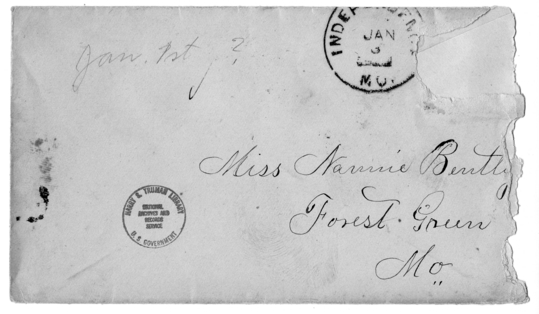 Jan. 1st ?
INDEPENDENC
JAN
3
MO.
Miss Nannie Bently
Forest Green
Mo
HARRY S. TRUMAN LIBRARY
NATIONAL
ARCHIVES AND
RECORDS
SERVICE
U. S. GOVERNMENT